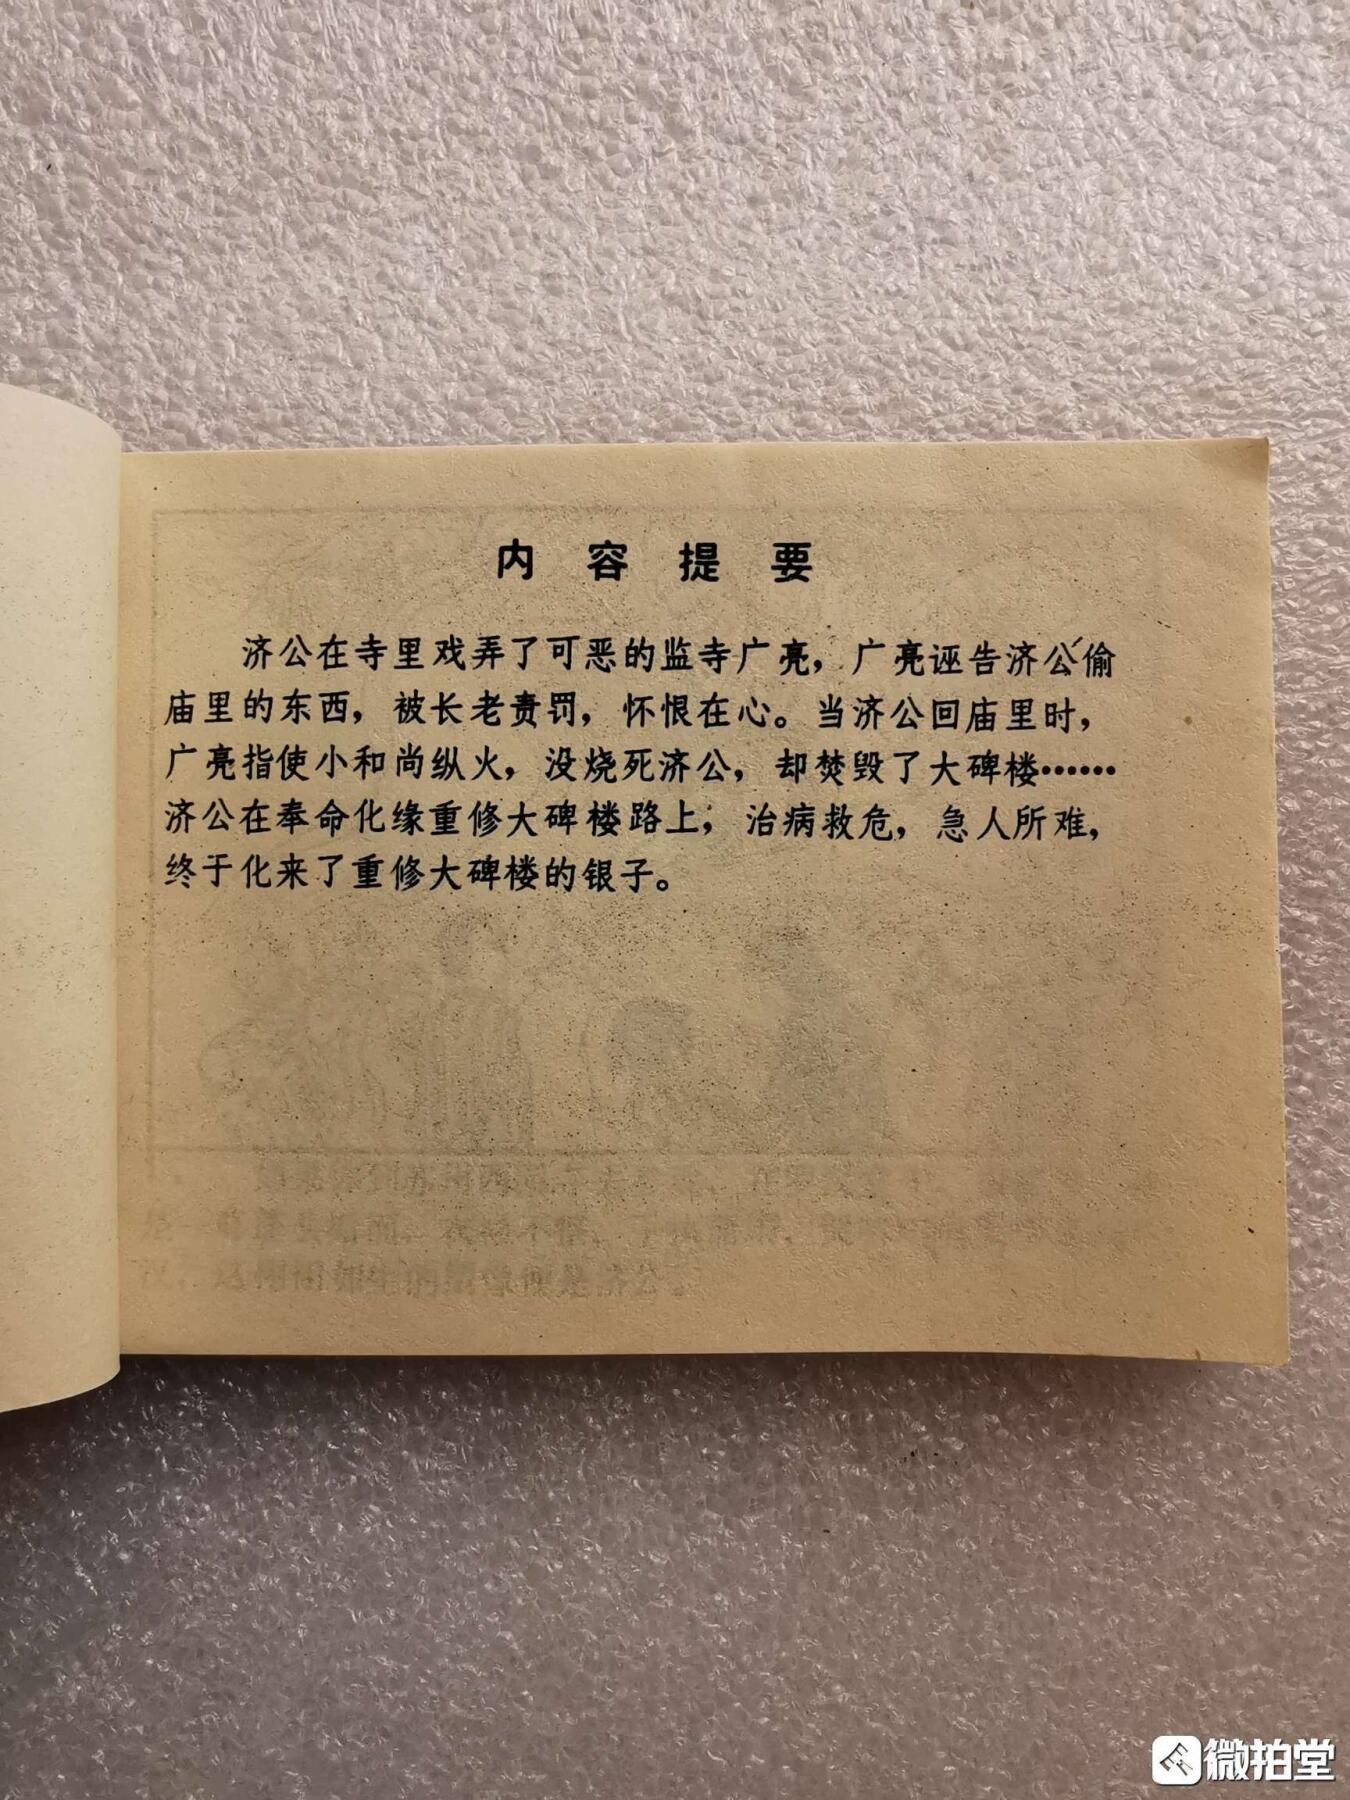 内容提要
济公在寺里戏弄了可恶的监寺广亮，广亮诬告济公偷
庙里的东西，被长老责罚，怀恨在心。当济公回庙里时，
广亮指使小和尚纵火，没烧死济公，却焚毁了大碑楼……
济公在奉命化缘重修大碑楼路上，治病救危，急人所难，
终于化来了重修大碑楼的银子。
微拍堂